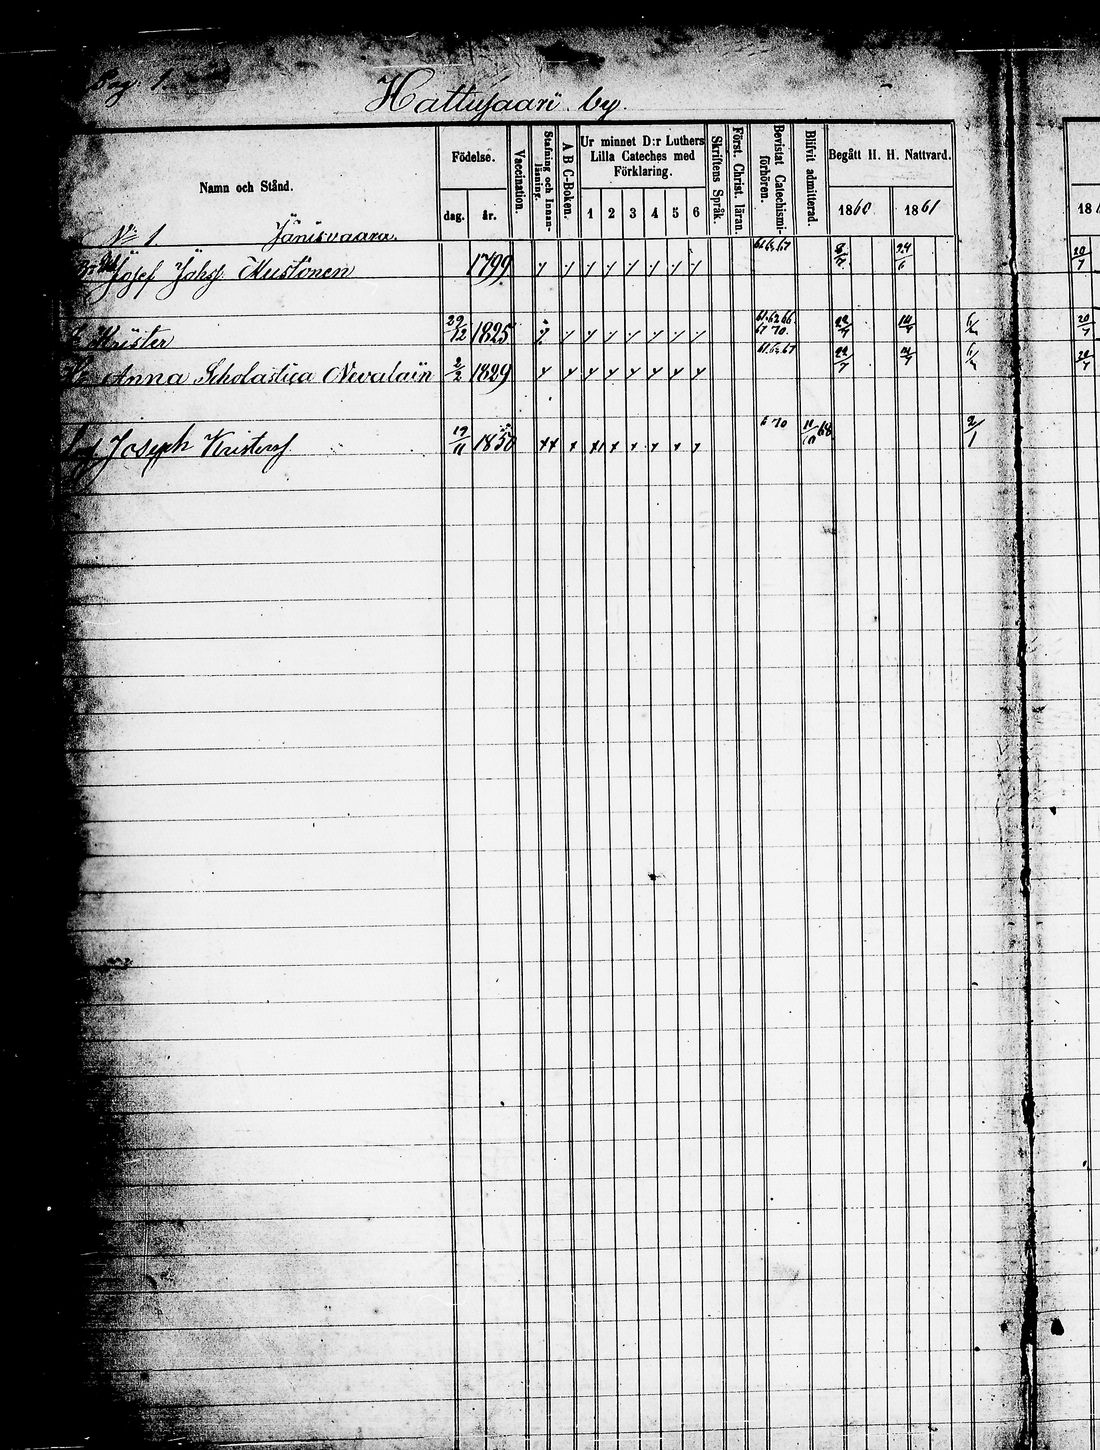 Pag. 1.
Hattusaari by.
Namn och Stånd.
Födelse.
dag. år.
Vaccination.
Stafning och Innan-läsning.
A B C-Boken.
Ur minnet D:r Luthers
Lilla Cateches med
Förklaring.
1 2 3 4 5 6
Skriftens Språk.
Först. Christ. läran.
Bevistat Catechismi-förhören.
Blifvit admitterad.
Begått H. H. Nattvard.
1860 1861
18
No 1. Jänisvaara.
Josef Johss Mustonen 1799 8/7 24/6 20/7
Krister 29/12 1825 61.62.66 67 70. 22/7 14/7 20/7
Anna Scholastica Nevalain 2/2 1829 22/7 20/7
Joseph Kristerss 19/11 1850 6 70 11/10 68 2/1